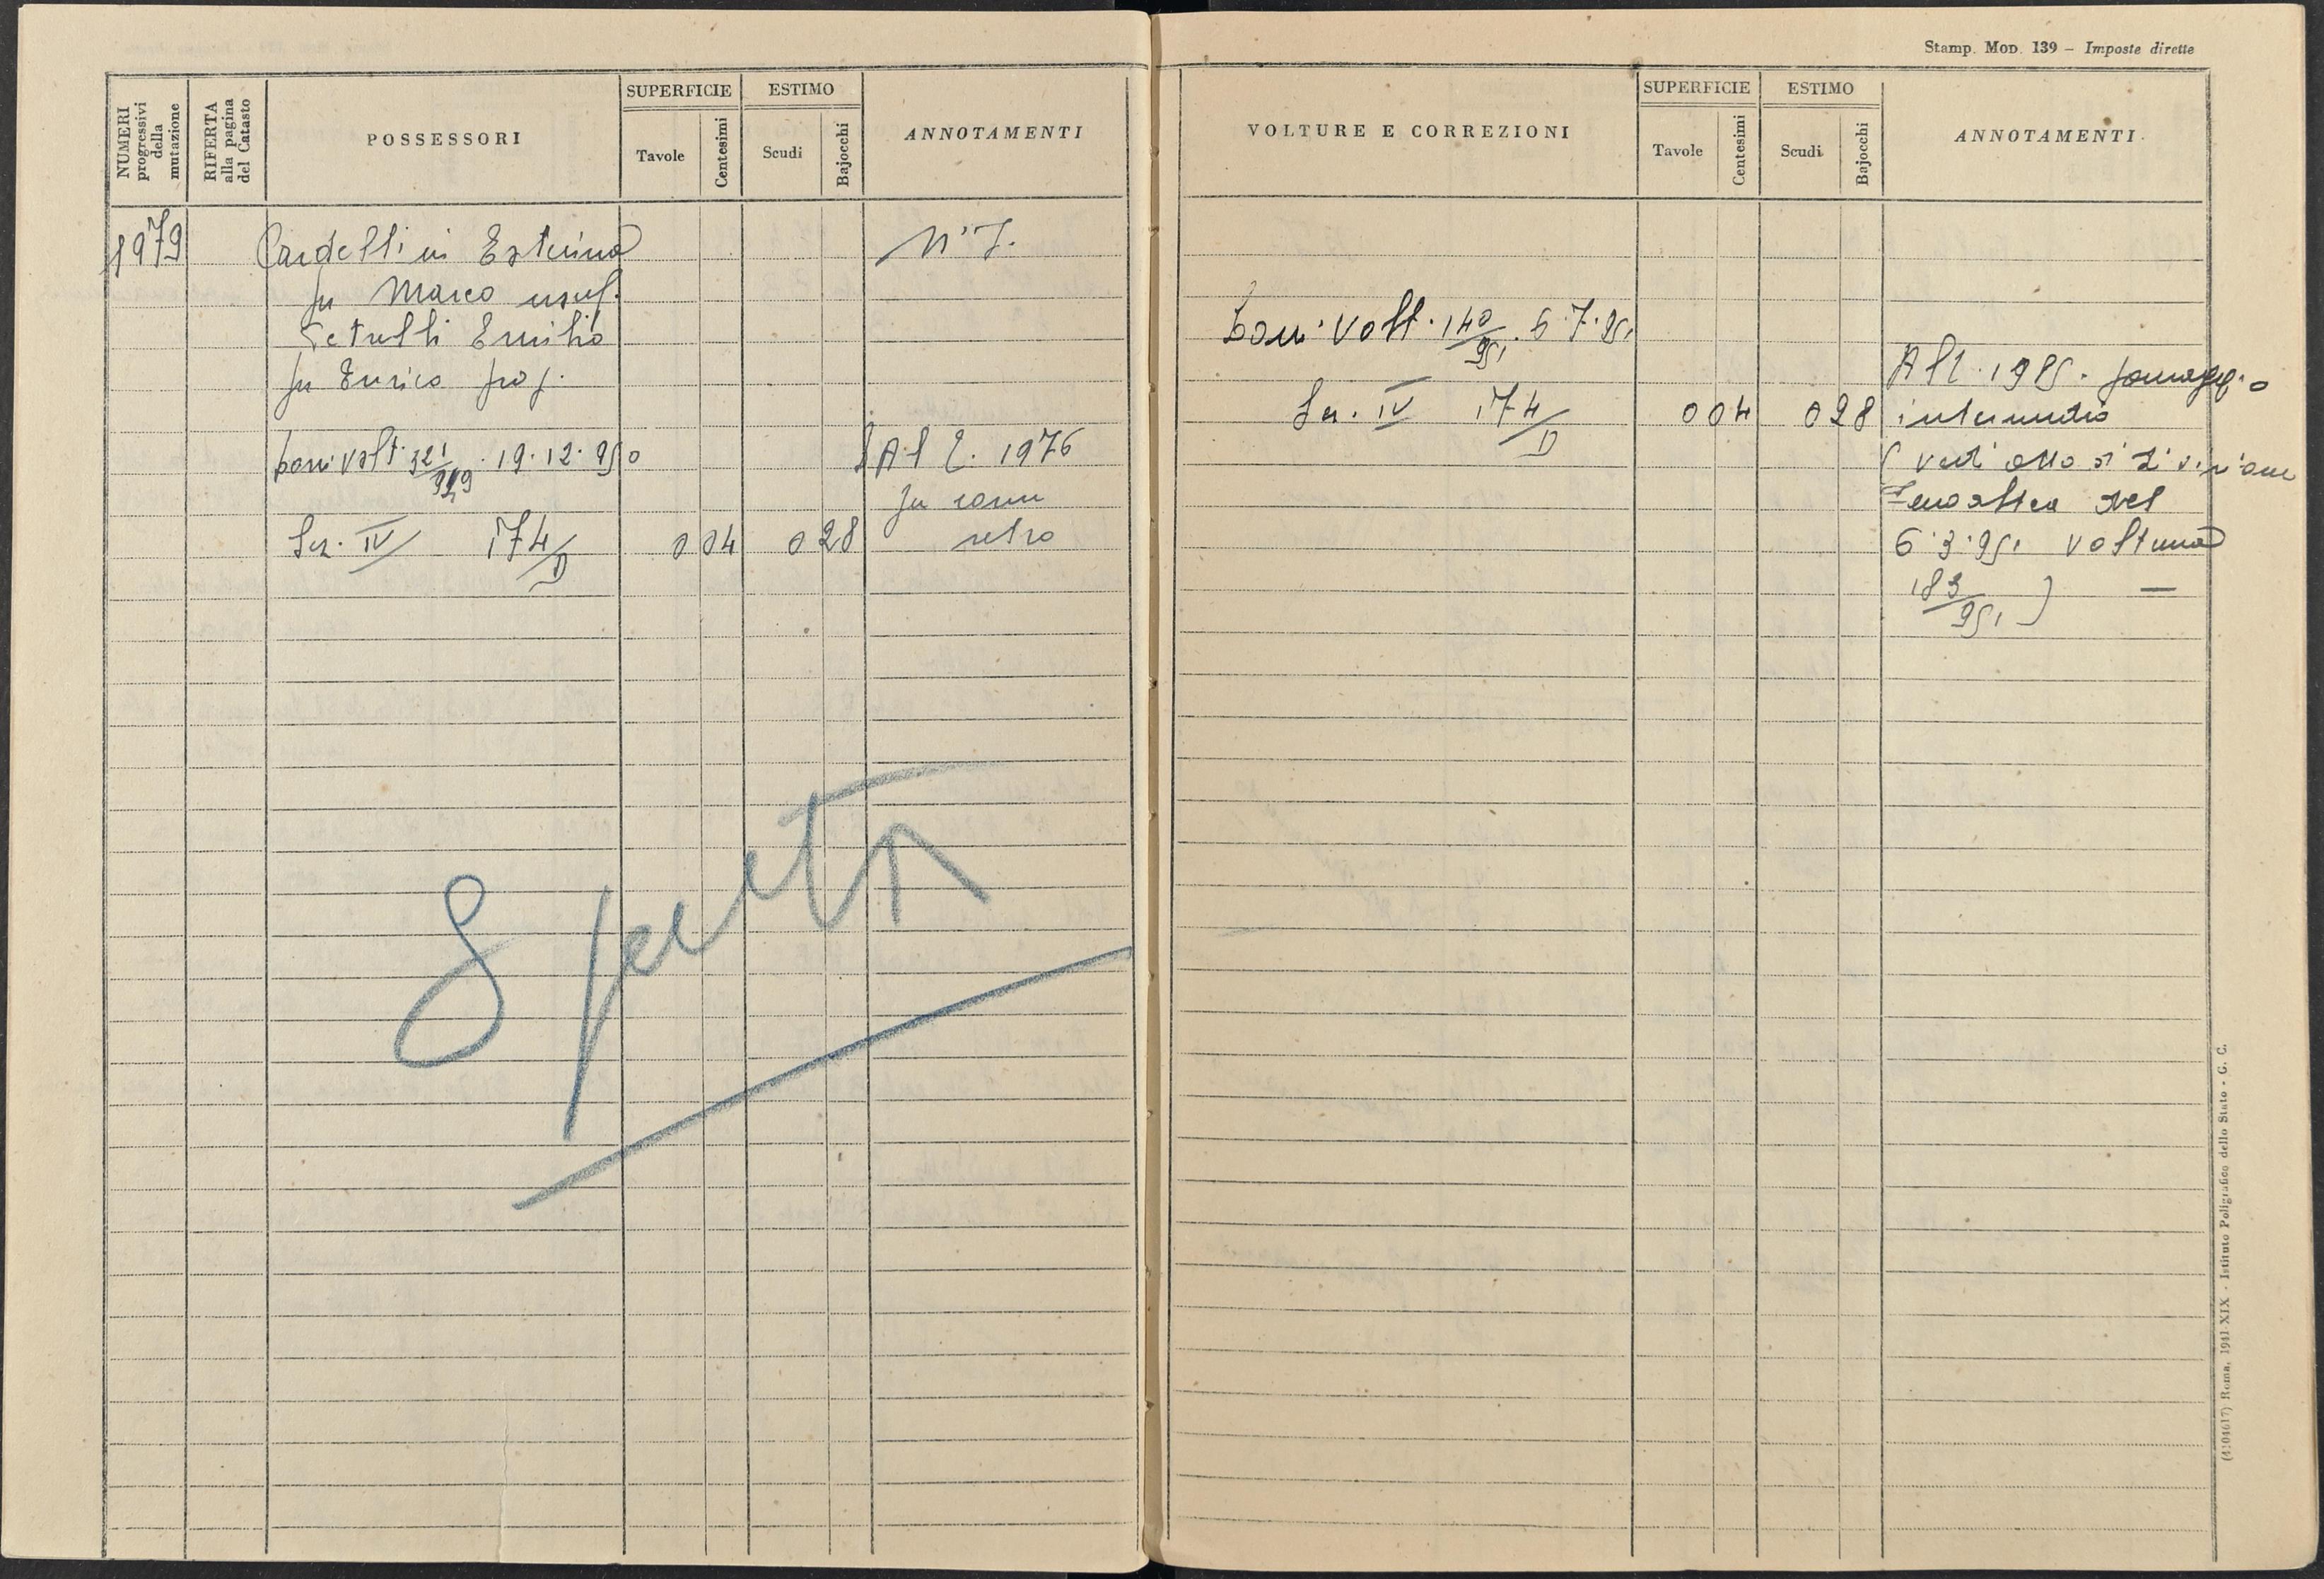 Stamp. Mod. 139 – Imposte dirette
NUMERI progressivi della mutazione
RIFERTA alla pagina del Catasto
POSSESSORI
SUPERFICIE
Tavole
Centesimi
ESTIMO
Scudi
Bajocchi
ANNOTAMENTI
1979
Cardellini Esterina
fu Marco usuf.
Petrelli Emilio
fu Enrico prop.
Com. volt. 321/949 . 19.12.950
Sez. IV 174/D 0 04 0 28
N° 7.
Al 2. 1976
retro
Spenta
VOLTURE E CORREZIONI
SUPERFICIE
Tavole
Centesimi
ESTIMO
Scudi
Bajocchi
ANNOTAMENTI
Com. Volt. 140/951 . 6.7.951
Sez. IV 174/D 0 04 0 28
Al 2. 1985. passaggio
intermedio
( vedi atto di divisione
del
6.3.951 voltura
183/951 ) —
(4104617) Roma, 1941-XIX - Istituto Poligrafico dello Stato - G. C.